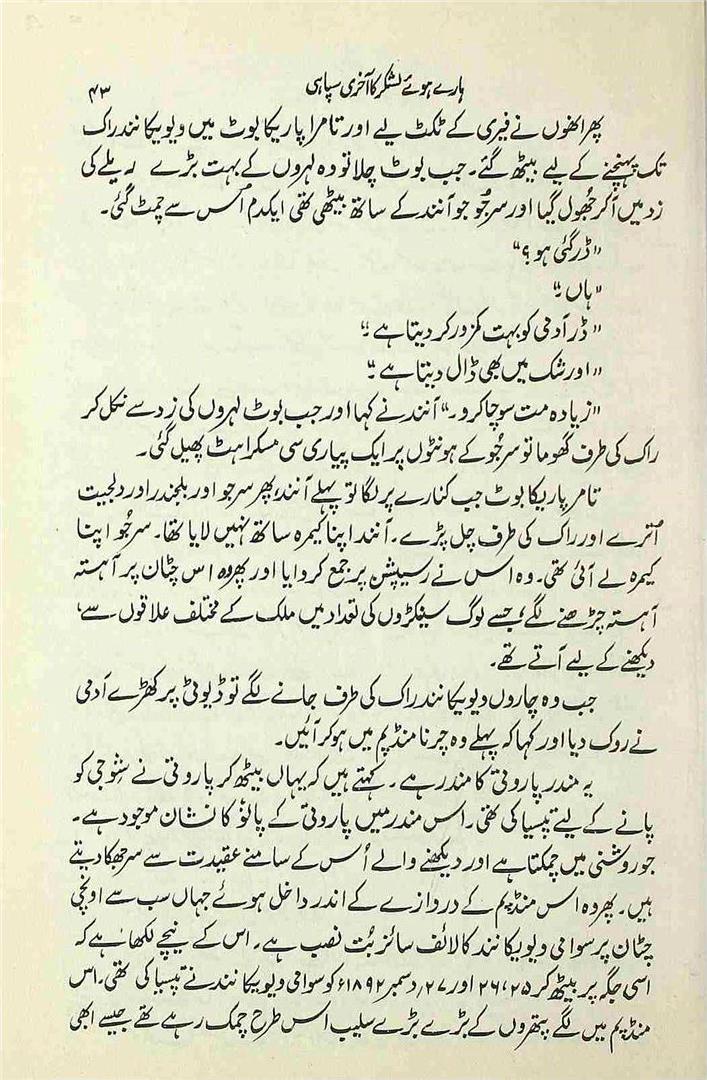 ہارے ہوئے لشکر کا آخری سپاہی
۴۳
پھر انھوں نے فیری کے ٹکٹ لیے اور تامرا پاریکا بوٹ میں ویویکا نند راک
تک پہنچنے کے لیے بیٹھ گئے۔ جب بوٹ چلا تو وہ لہروں کے بہت بڑے ریلے کی
زد میں آکر جھول گیا اور سرجُو جو آنند کے ساتھ بیٹھی تھی ایکدم اُس سے چمٹ گئی۔
”ڈر گئی ہو؟“
”ہاں۔“
”ڈر آدمی کو بہت کمزور کر دیتا ہے۔“
”اور شک میں بھی ڈال دیتا ہے۔“
”زیادہ مت سوچا کرو۔“ آنند نے کہا اور جب بوٹ لہروں کی زد سے نکل کر
راک کی طرف گھوما تو سرجُو کے ہونٹوں پر ایک پیاری سی مسکراہٹ پھیل گئی۔
تامر پاریکا بوٹ جب کنارے پر لگا تو پہلے آنند پھر سرجو اور بلجندر اور دلجیت
اُترے اور راک کی طرف چل پڑے۔ آنند اپنا کیمرہ ساتھ نہیں لایا تھا۔ سرجُو اپنا
کیمرہ لے آئی تھی۔ وہ اس نے رسیپشن پر جمع کروایا اور پھر وہ اس چٹان پر آہستہ
آہستہ چڑھنے لگے، جسے لوگ سینکڑوں کی تعداد میں ملک کے مختلف علاقوں سے،
دیکھنے کے لیے آتے تھے۔
جب وہ چاروں ویویکا نند راک کی طرف جانے لگے تو ڈیوٹی پر کھڑے آدمی
نے روک دیا اور کہا کہ پہلے وہ چرنا منڈپم میں ہو کر آئیں۔
یہ مندر پاروتی کا مندر ہے۔ کہتے ہیں کہ یہاں بیٹھ کر پاروتی نے شِوجی کو
پانے کے لیے تپسیا کی تھی۔ اس مندر میں پاروتی کے پانوٗ کا نشان موجود ہے۔
جو روشنی میں چمکتا ہے اور دیکھنے والے اُس کے سامنے عقیدت سے سر جھکا دیتے
ہیں۔ پھر وہ اس منڈپم کے دروازے کے اندر داخل ہوئے جہاں سب سے اونچی
چٹان پر سوامی ویویکا نند کا لائف سائز بُت نصب ہے۔ اس کے نیچے لکھا ہے کہ
اسی جگہ پر بیٹھ کر ۲۵، ۲۶ اور ۲۷؍ دسمبر ۱۸۹۲ء کو سوامی ویویکا نند نے تپسیا کی تھی۔ اس
منڈپم میں لگے پتھروں کے بڑے بڑے سلیب اس طرح چمک رہے تھے جیسے ابھی